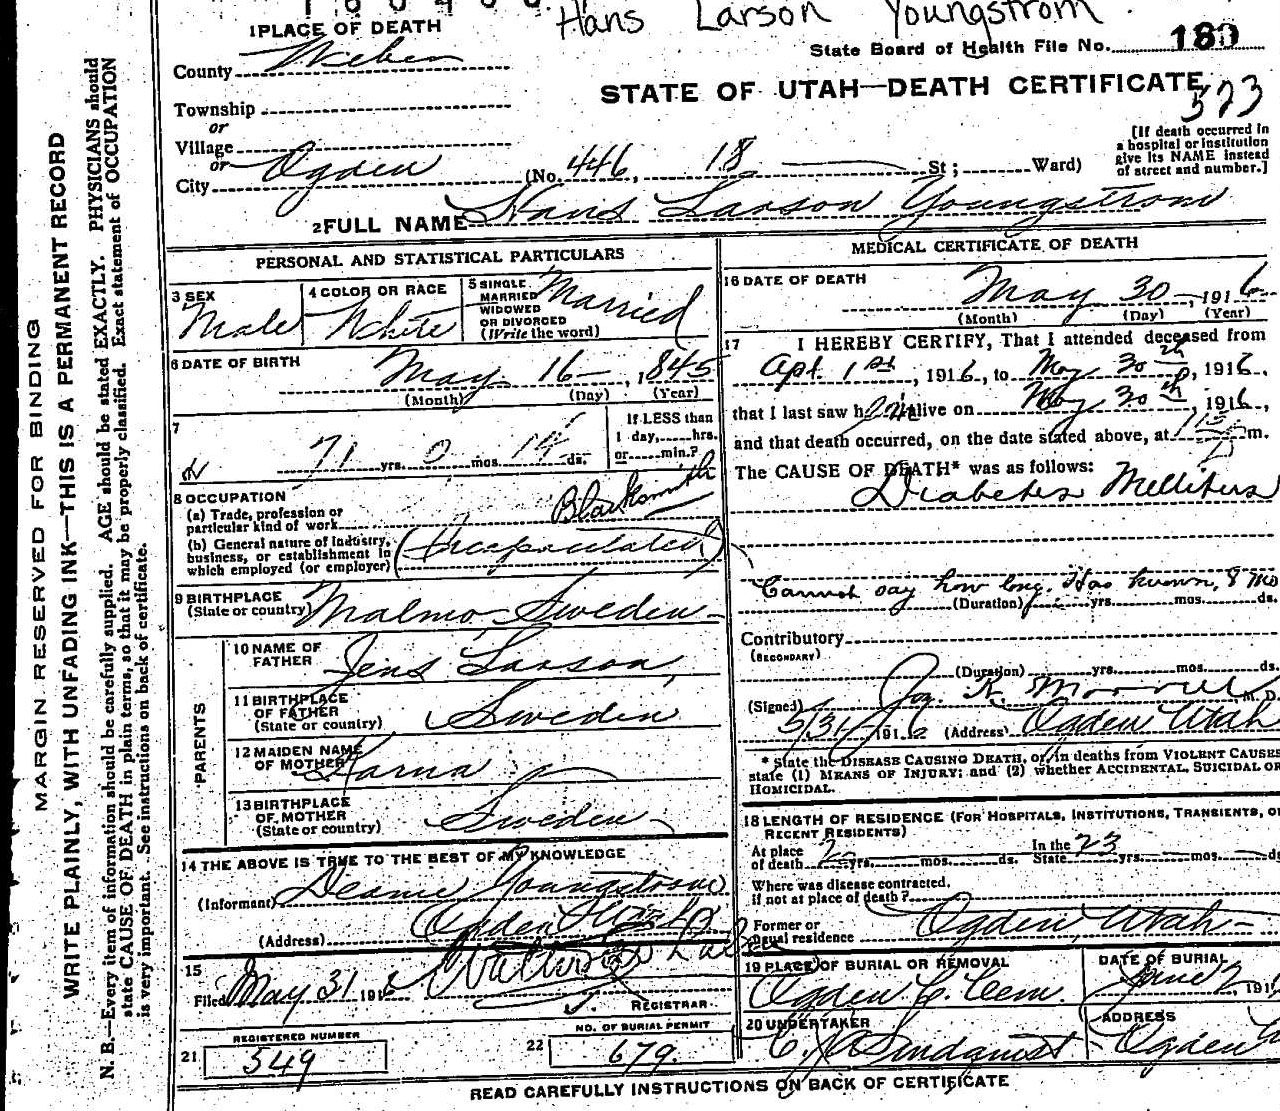 Hans Larson Youngstrom
1 PLACE OF DEATH
State Board of Health File No. 180
County Weber
STATE OF UTAH—DEATH CERTIFICATE
573
Township
or
Village
or
City Ogden (No. 446, 18 St; Ward)
[If death occurred in
a hospital or institution
give its NAME instead
of street and number.]
2 FULL NAME Hans Larson Youngstrom
PERSONAL AND STATISTICAL PARTICULARS
3 SEX Male
4 COLOR OR RACE White
5 SINGLE
MARRIED
WIDOWED
OR DIVORCED
(Write the word) Married
6 DATE OF BIRTH
May 16, 1845
(Month) (Day) (Year)
7
71 yrs. 0 mos. 14 ds.
If LESS than
1 day, hrs.
or min.?
8 OCCUPATION
(a) Trade, profession or
particular kind of work Blacksmith
(b) General nature of industry,
business, or establishment in
which employed (or employer) (Incapacitated)
9 BIRTHPLACE
(State or country) Malmo Sweden
PARENTS
10 NAME OF
FATHER Jens Larson
11 BIRTHPLACE
OF FATHER
(State or country) Sweden
12 MAIDEN NAME
OF MOTHER Karna
13 BIRTHPLACE
OF MOTHER
(State or country) Sweden
14 THE ABOVE IS TRUE TO THE BEST OF MY KNOWLEDGE
(Informant) Youngstrom
(Address) Ogden Utah
15
Filed May 31 1916
REGISTRAR
REGISTERED NUMBER
21 549
NO. OF BURIAL PERMIT
22 679.
MEDICAL CERTIFICATE OF DEATH
16 DATE OF DEATH
May 30, 1916
(Month) (Day) (Year)
17 I HEREBY CERTIFY, That I attended deceased from
Apt. 1st, 1916, to May 30th, 1916,
that I last saw h alive on May 30th, 1916,
and that death occurred, on the date stated above, at m.
The CAUSE OF DEATH* was as follows:
Diabetes Mellitus
Cannot say how long. Has known, 8 mo
(Duration) yrs. mos. ds.
Contributory
(SECONDARY)
(Duration) yrs. mos. ds.
(Signed) Jos. R. Morrell M. D.
5/31/ 1916 (Address) Ogden Utah
* State the DISEASE CAUSING DEATH, or, in deaths from VIOLENT CAUSES
state (1) MEANS OF INJURY; and (2) whether ACCIDENTAL, SUICIDAL OR
HOMICIDAL.
18 LENGTH OF RESIDENCE (FOR HOSPITALS, INSTITUTIONS, TRANSIENTS, OR
RECENT RESIDENTS)
At place
of death yrs. mos. ds.
In the
State 23 yrs. mos. ds
Where was disease contracted,
if not at place of death?
Former or
usual residence Ogden, Utah
19 PLACE OF BURIAL OR REMOVAL
Ogden C. Cem.
DATE OF BURIAL
June 2, 191
20 UNDERTAKER
ADDRESS
Ogden
READ CAREFULLY INSTRUCTIONS ON BACK OF CERTIFICATE
MARGIN RESERVED FOR BINDING
WRITE PLAINLY, WITH UNFADING INK—THIS IS A PERMANENT RECORD
N. B.—Every item of information should be carefully supplied. AGE should be stated EXACTLY. PHYSICIANS should
state CAUSE OF DEATH in plain terms, so that it may be properly classified. Exact statement of OCCUPATION
is very important. See instructions on back of certificate.